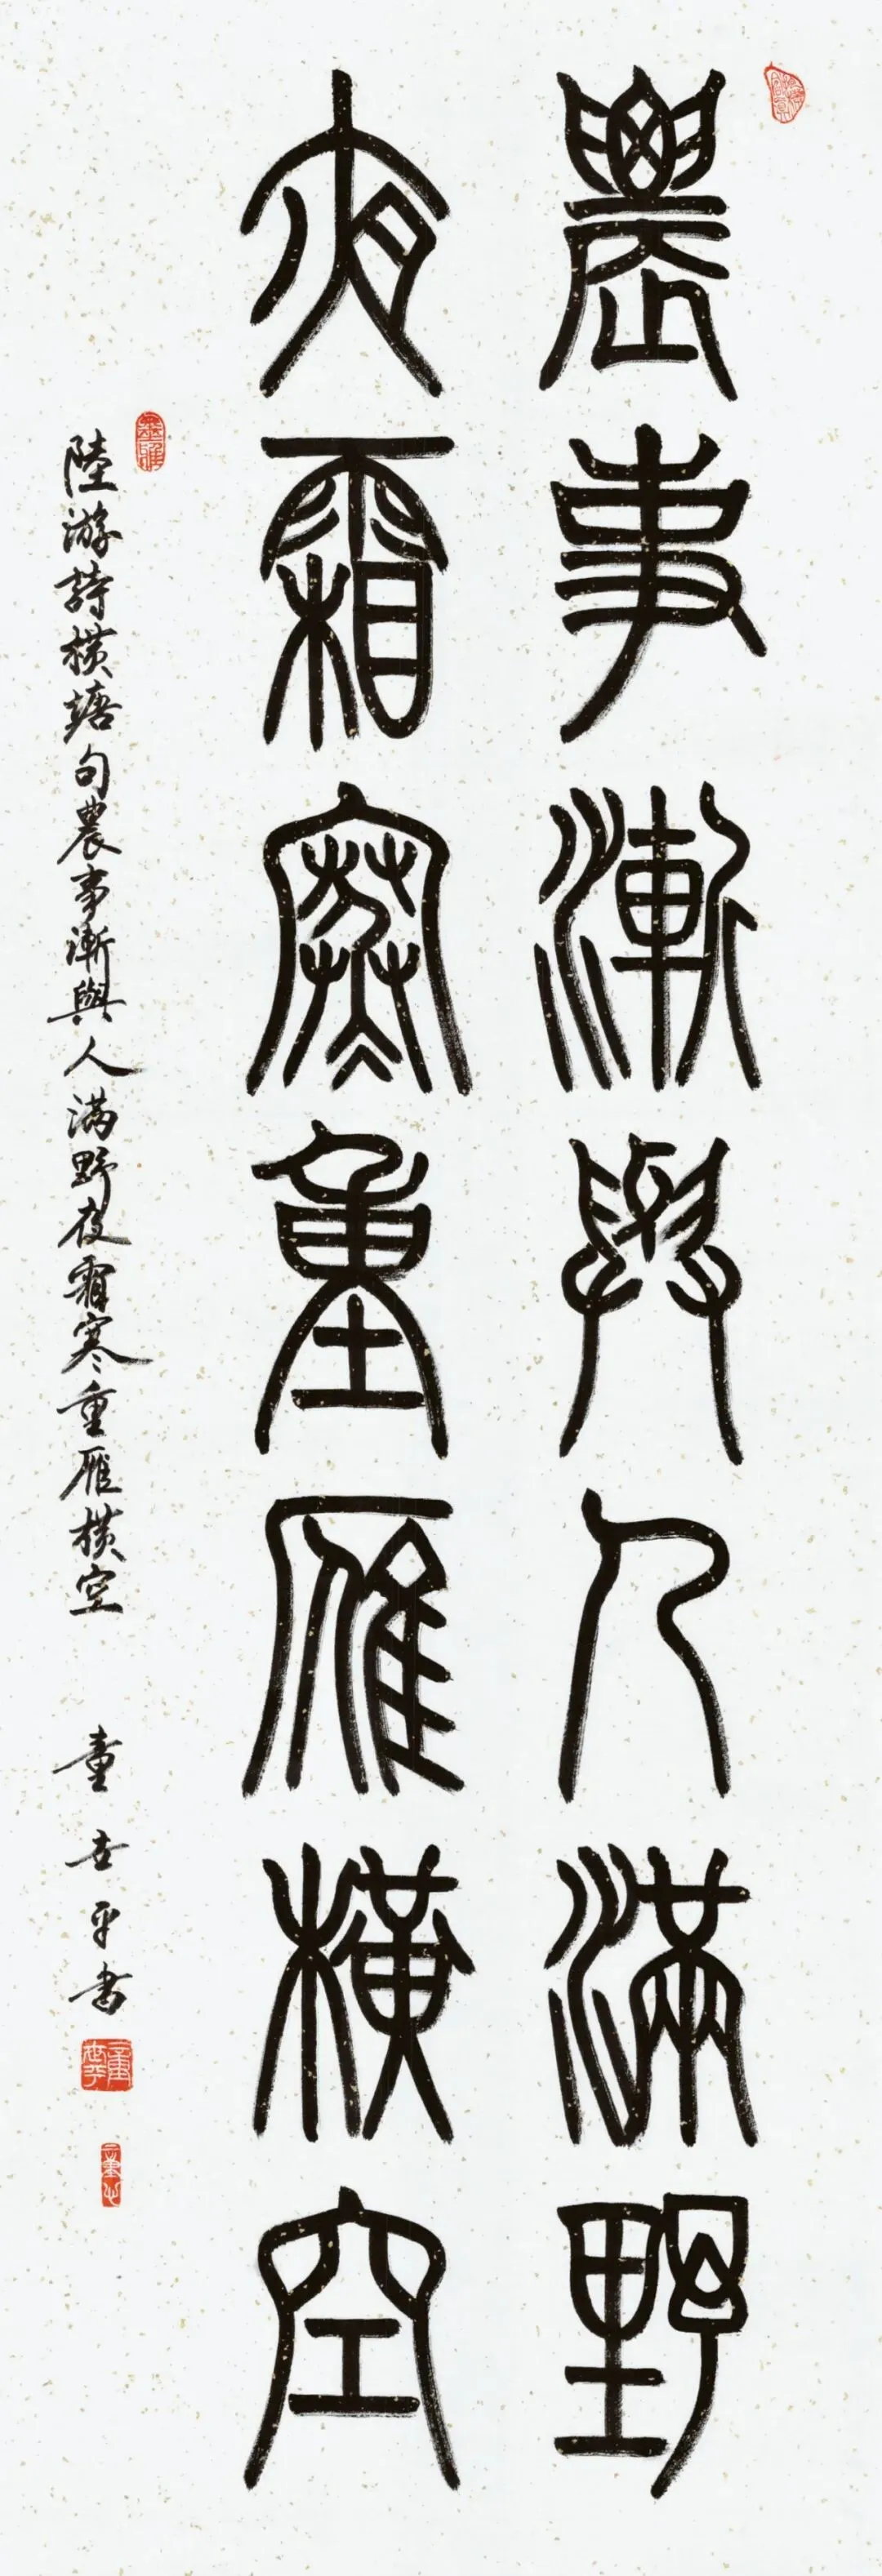 農事漸與人滿野
夜霜寒重雁橫空
陸游詩橫塘句農事漸與人满野夜霜寒重雁橫空
童世平書
童世平